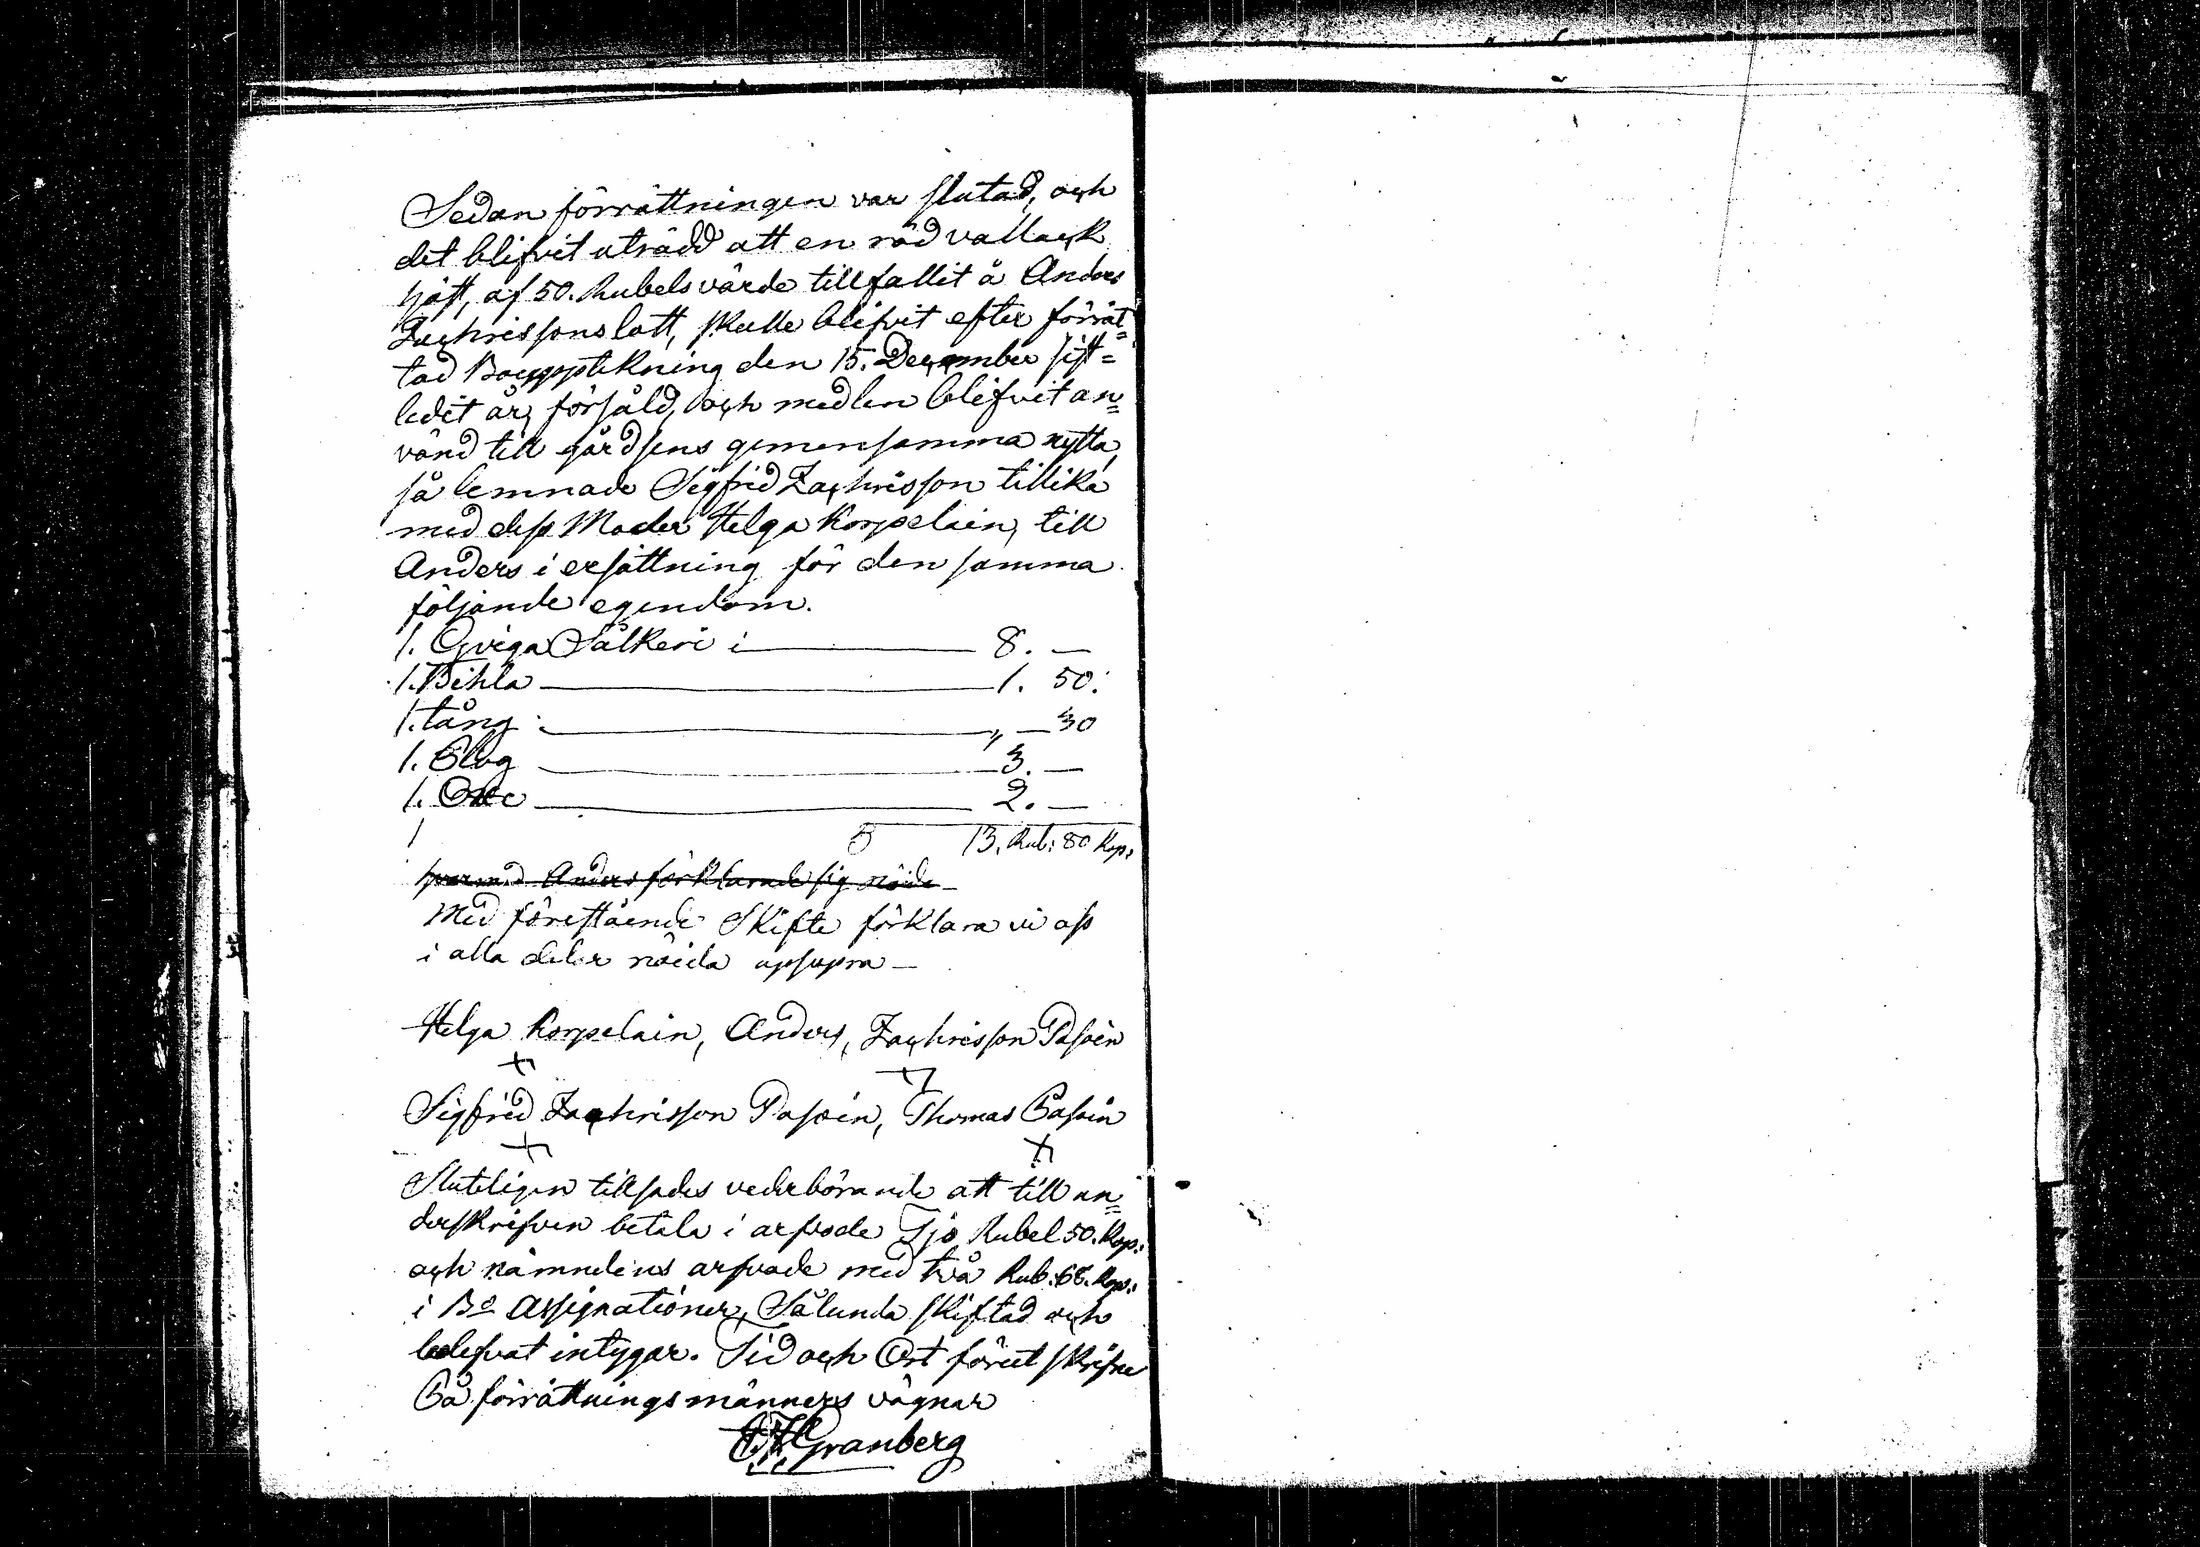 Sedan förrättningen var slutad, och
det blifvit utrådd att en röd vallack
häst, af 50. Rubels värde tillfallit å Anders
Zachrissons lott, skulle blifvit efter förrät=
tad Boupptekning den 15. December sist=
ledit år, försåld, och medlen blifvit an=
vänd till gårdsens gemensamma nytta,
så lemnade Sigfrid Zachrisson tillika
med dess Moder Helga Korpelain, till
Anders i ersättning för den samma
följande egendom.
1. Qviga Sälkeri i 8. —
1. Bihla 1. 50.
1. tång „ — 30
1. Plog 3. —
1. 2. —
13. Rub: 80 Kop:
hvarmed Anders förklarade sig nöide
Med förestående Skifte förklara vi oss
i alla delar nöida utsupra —
Helga Korpelain, Anders, Zachrisson Pasoin
Sigfrid Zachrisson Pasoin, Thomas Pasoin
Sluteligen tillsades vederbörande att till un=
derskrifven betala i arfvode Tjo Rubel 50. Kop:
och nämndens arfvode med två Rub. 68. Kop:
i Bo Assignationer, Sålunda skiftad och
belefvat intygar. Tid och Ort förut skrifne
På förrättningsmänners vägnar
Granberg